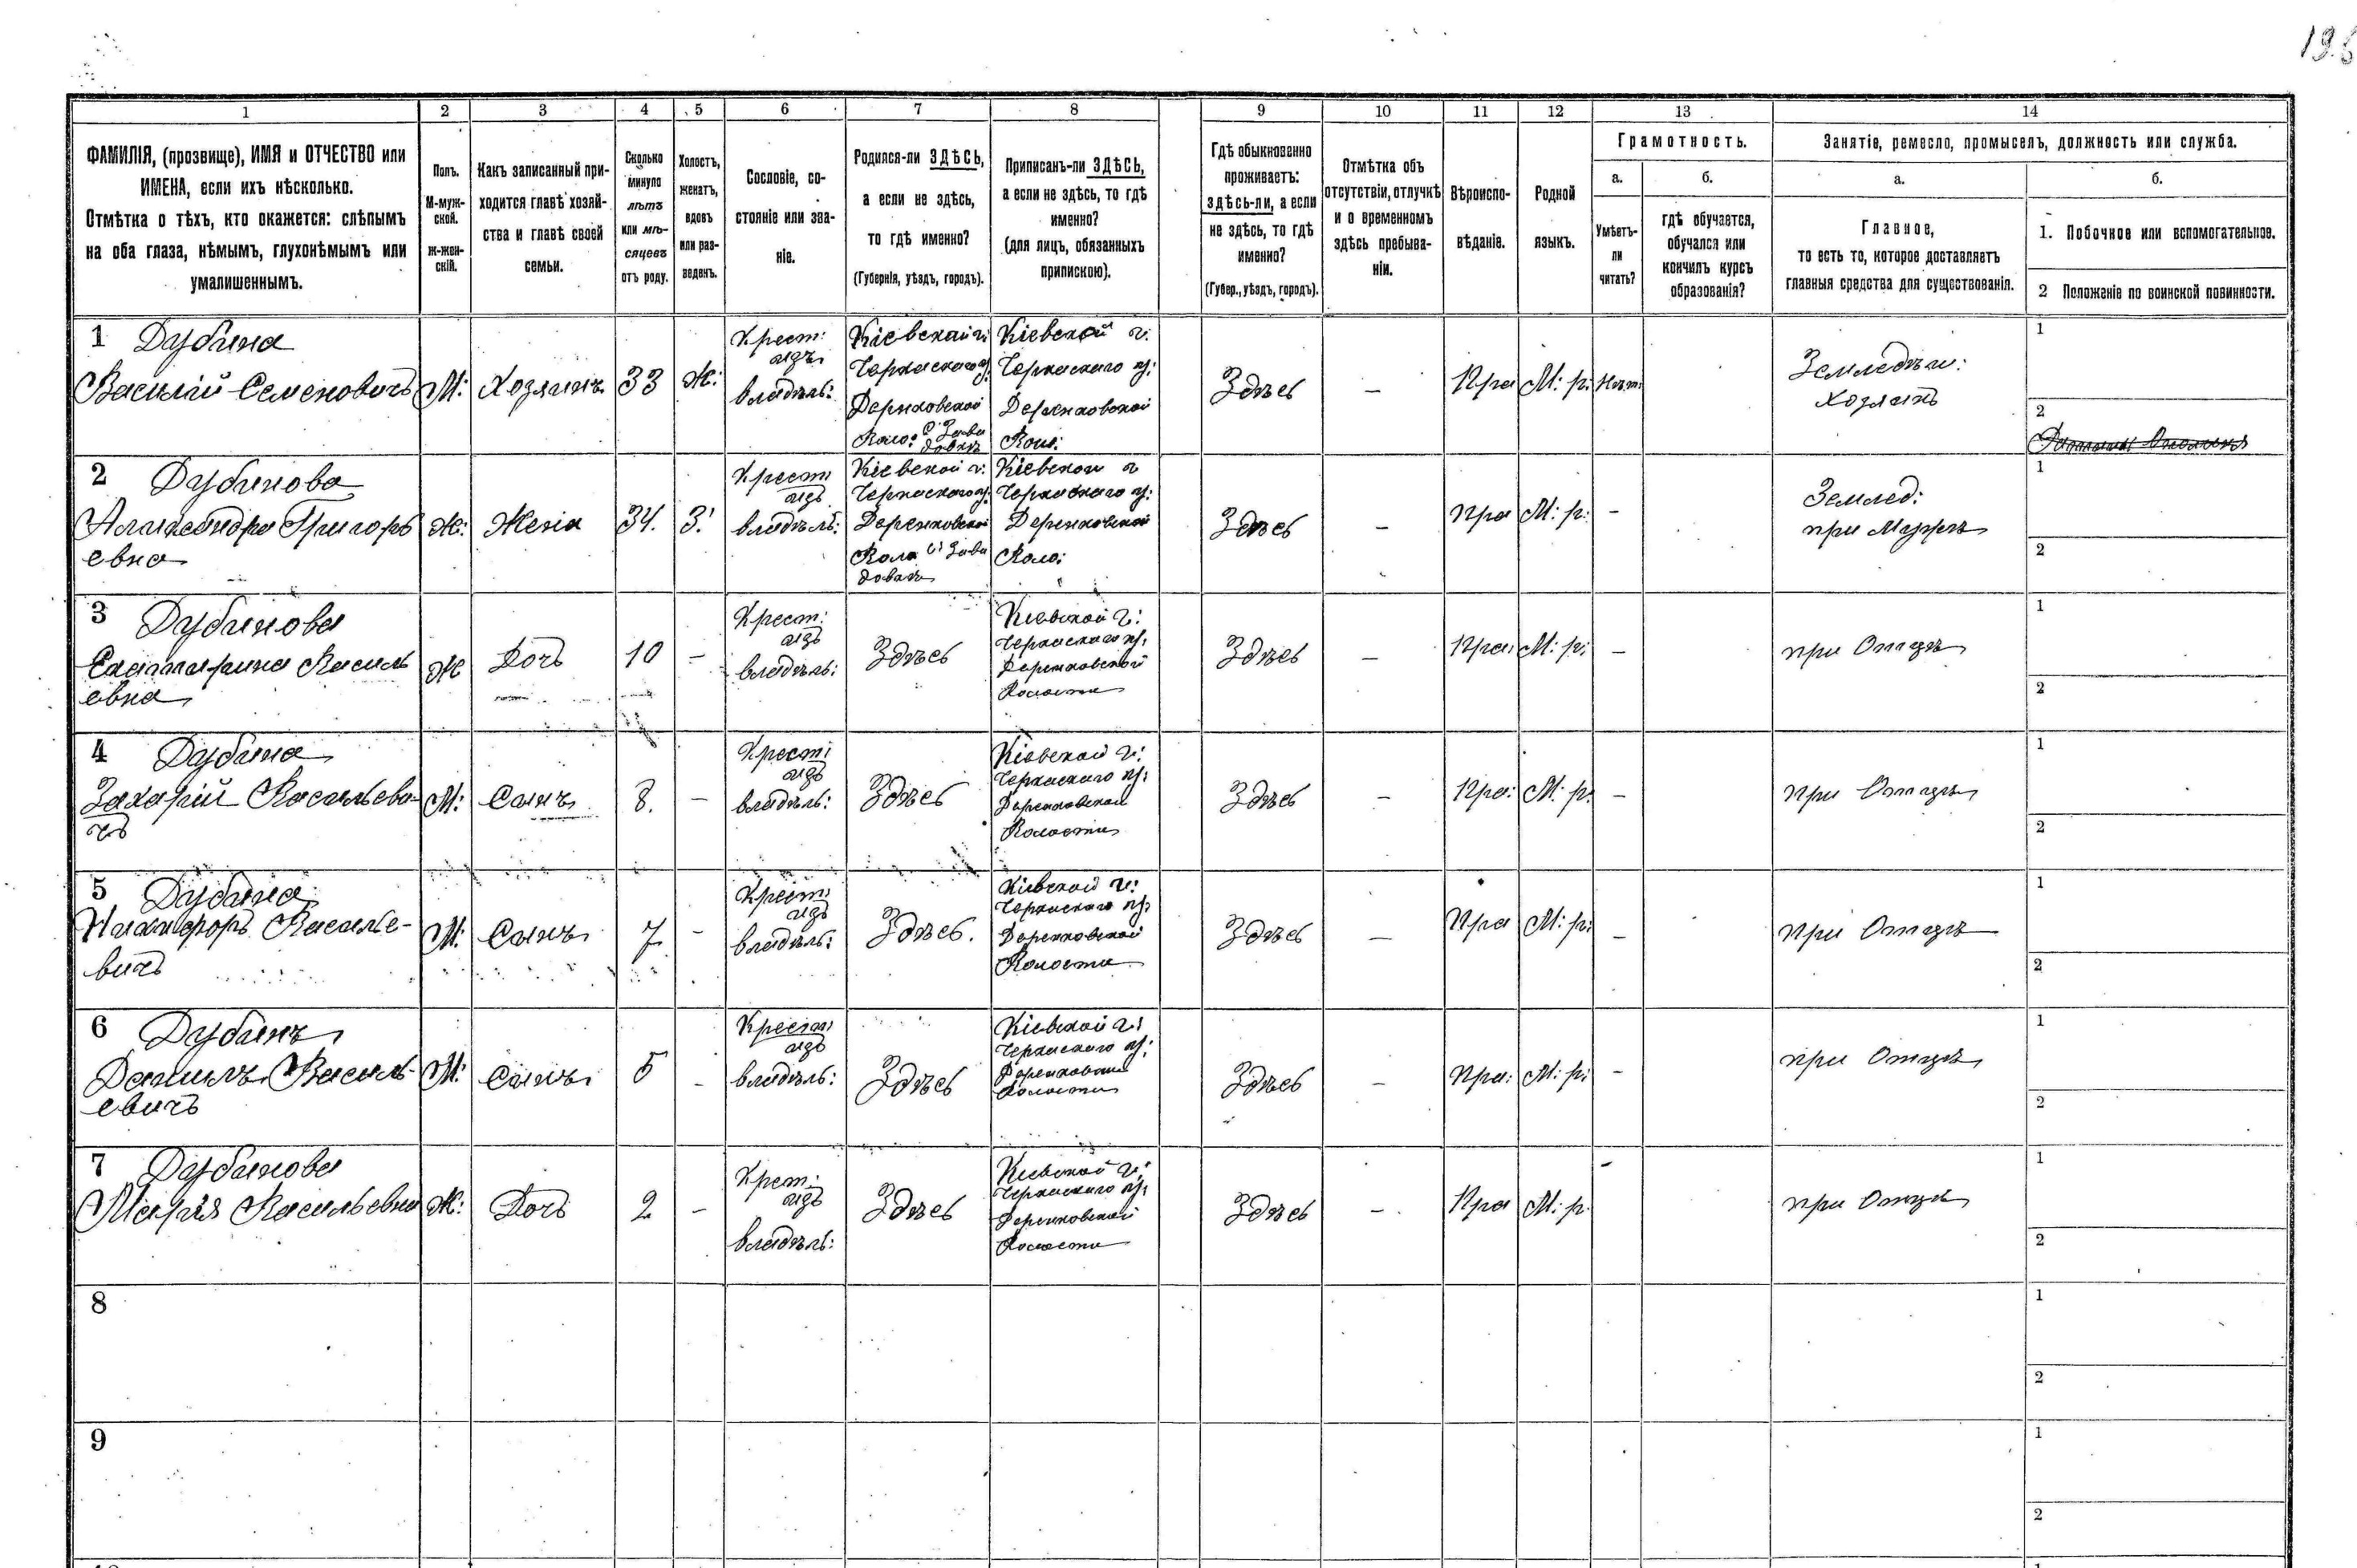 1 2 3 4 5 6 7 8 9 10 11 12 13 14
ФАМИЛІЯ, (прозвище), ИМЯ и ОТЧЕСТВО или
ИМЕНА, если ихъ нѣсколько.
Отмѣтка о тѣхъ, кто окажется: слѣпымъ
на оба глаза, нѣмымъ, глухонѣмымъ или
умалишеннымъ.
Полъ.
М-муж-
ской.
Ж-жен-
скій.
Какъ записанный при-
ходится главѣ хозяй-
ства и главѣ своей
семьи.
Сколько
минуло
лѣтъ
или мѣ-
сяцевъ
отъ роду.
Холостъ,
женатъ,
вдовъ
или раз-
веденъ.
Сословіе, со-
стояніе или зва-
ніе.
Родился-ли ЗДѢСЬ,
а если не здѣсь,
то гдѣ именно?
(Губернія, уѣздъ, городъ).
Приписанъ-ли ЗДѢСЬ,
а если не здѣсь, то гдѣ
именно?
(для лицъ, обязанныхъ
припискою).
Гдѣ обыкновенно
проживаетъ:
здѣсь-ли, а если
не здѣсь, то гдѣ
именно?
(Губер., уѣздъ, городъ).
Отмѣтка объ
отсутствіи, отлучкѣ
и о временномъ
здѣсь пребыва-
ніи.
Вѣроиспо-
вѣданіе.
Родной
языкъ.
Грамотность.
а.
Умѣетъ-
ли
читать?
б.
гдѣ обучается,
обучался или
кончилъ курсъ
образованія?
Занятіе, ремесло, промыселъ, должность или служба.
а.
Главное,
то есть то, которое доставляетъ
главныя средства для существованія.
б.
1. Побочное или вспомогательное.
2 Положеніе по воинской повинности.
1 Дубина
Василій Семеновичъ
М:
Хозяинъ
33
Ж:
Крест:
изъ
владѣль:
Кіевской г:
Черкаскаго у:
Деренковской
Воло: с: Зава
довкѣ
Кіевской г:
Черкаскаго у:
Деренковской
Воло:
Здѣсь
—
Пра
М: р:
Нѣт:
Земледѣл:
Хозяинъ
1
2
2 Дубинова
Александра Григорь
евна
Ж:
Жена
34.
З:
Крест:
изъ
владѣль:
Кіевской г:
Черкаскаго у:
Деренковской
Воло с: Зава
довкѣ
Кіевской г
Черкаскаго у:
Деренковской
Воло:
Здѣсь
—
Пра
М: р:
-
Землед:
при Мужѣ
1
2
3 Дубинова
Екатерина Василь
евна
Ж
Дочь
10
-
Крест:
изъ
владѣль:
Здѣсь
Кіевской г:
Черкаскаго у:
Деренковской
Волости
Здѣсь
—
Пра:
М: р:
-
при Отцѣ
1
2
4 Дубина
Захарій Васильеви-
чъ
М:
Сынъ
8.
-
Крест:
изъ
владѣль:
Здѣсь
Кіевской г:
Черкаскаго у:
Деренковской
Волости
Здѣсь
-
Пра:
М: р:
-
при Отцѣ
1
2
5 Дубина
Никифоръ Василье-
вичъ
М:
Сынъ
7
-
Крест:
изъ
владѣль:
Здѣсь.
Кіевской г:
Черкаскаго у:
Деренковской
Волости
Здѣсь
—
Пра
М: р:
-
при Отцѣ
1
2
6 Дубинъ
Данилъ Василь-
евичъ
М:
Сынъ
5
-
Крест:
изъ
владѣль:
Здѣсь
Кіевской г:
Черкаскаго у:
Деренковской
Волости
Здѣсь
-
Пра:
М: р:
-
при Отцѣ
1
2
7 Дубинова
Марія Васильевна
Ж:
Дочь
2
-
Крест:
изъ
владѣль:
Здѣсь
Кіевской г:
Черкаскаго у:
Деренковской
Волости
Здѣсь
-
Пра
М: р.
при Отцѣ
1
2
8
1
2
9
1
2